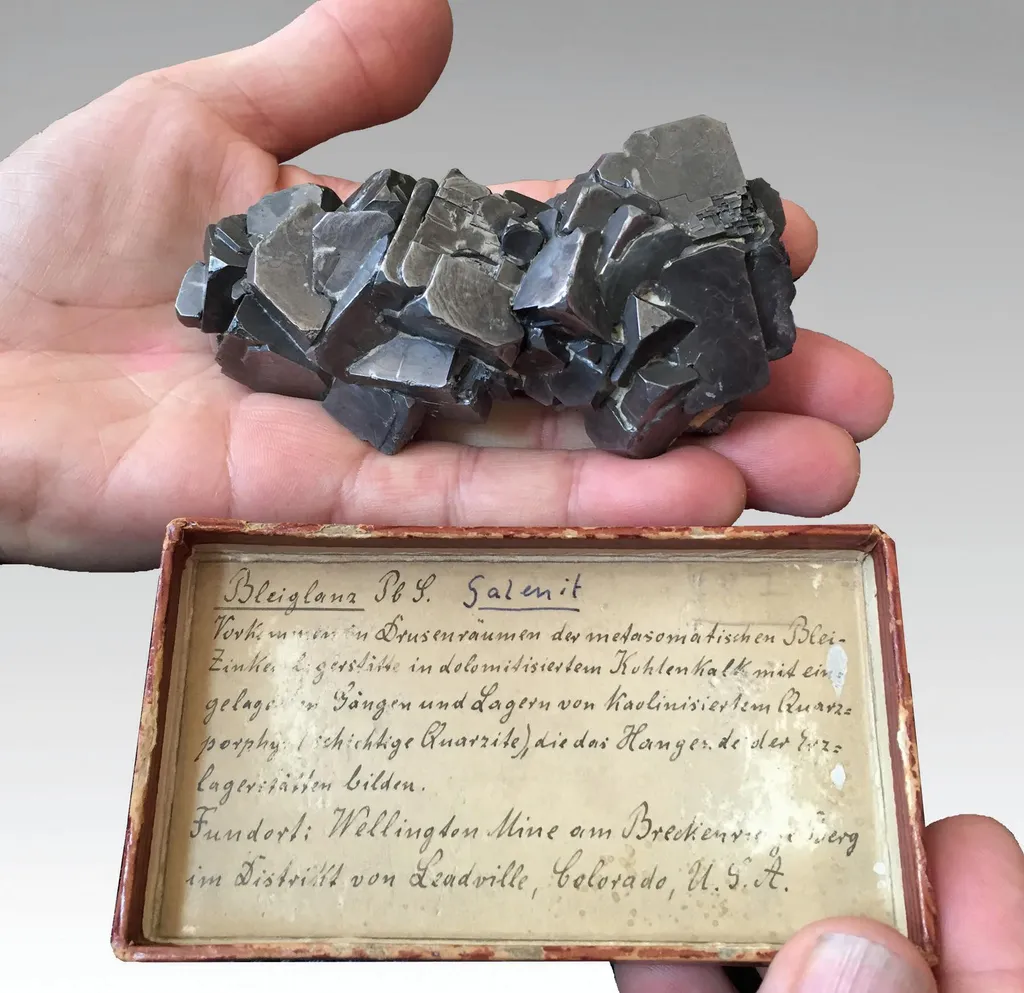 Bleiglanz Pb S. Galenit
Vorkommen in Drusenräumen der metasomatischen Blei-
Zinkerzlagerstätte in dolomitisiertem Kohlenkalk mit ein=
gelagerten Gängen und Lagern von kaolinisiertem Quarz=
porphyr (schichtige Quarzite), die das Hangende der Erz=
lagerstätten bilden.
Fundort: Wellington Mine am Breckenridge Berg
im Distrikt von Leadville, Colorado, U.S.A.